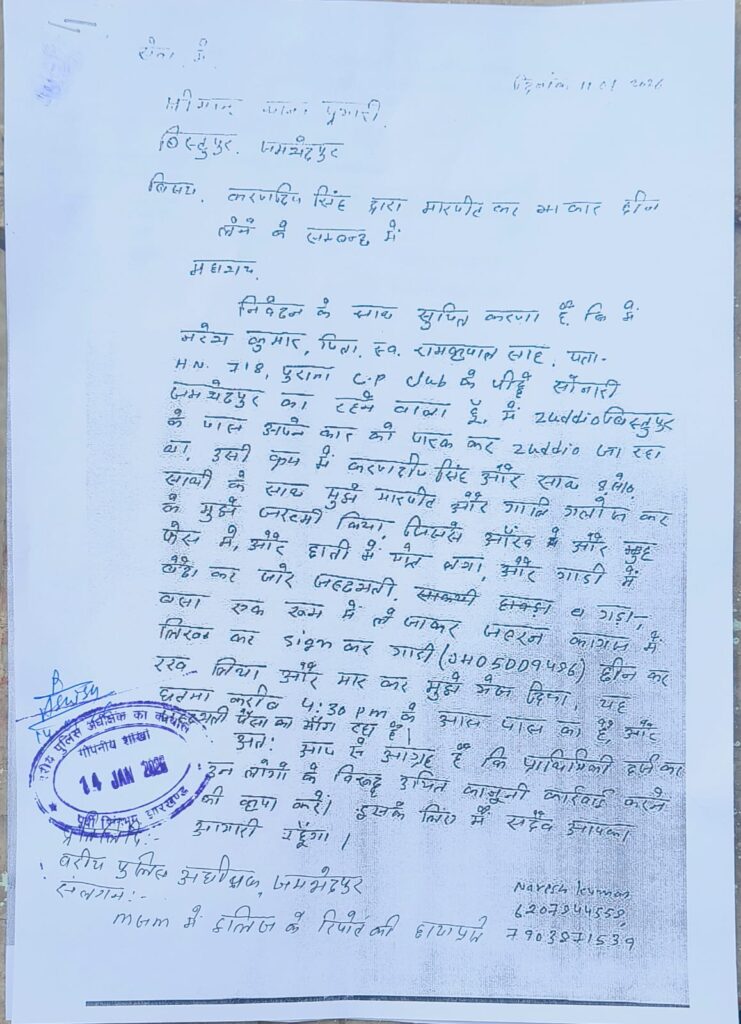 सेवा में
दिनांक 11 01 2026
श्रीमान थाना प्रभारी
बिस्टुपुर, जमशेदपुर
विषय. करणदिप सिंह द्वारा मारपीट कर कार छीन
लेने के सम्बन्ध में
महाशय,
निवेदन के साथ सुचित करना है, कि में
नरेश कुमार, पिता, स्व. रामकृपाल साह, पता-
H.N. 718, पुराना C.P Club के पीछे सोनारी
जमशेदपुर का रहने वाला हूँ, में zuddio बिस्टुपुर
के पास अपने कार को पारक कर zuddio जा रहा
था, उसी क्रम में करणदीप सिंह और साथ
साथी के साथ मुझे मारपीट और गाली गलौज कर
के मुझे जख्मी किया, जिससे आँख में और मुह
फेस में, और छाती में चोट लगा, और गाडी में
बैठा कर जोर जबरदस्ती,
एक रूम में ले जाकर जबरन कागज में
लिखवा कर sign कर गाडी (JH05DD9486) छीन कर
रख लिया और मार कर मुझे भेज दिया, यह
घटना करीब 4:30 pm के आस पास का है, और
पैसा का माँग रहा है।
अतः आप से आग्रह है कि प्राथमिकी दर्ज कर
उन लोगों के विरूद्ध उचित कानूनी कार्रवाई करने
की कृपा करें। इसके लिए में सदैव आपका
आभारी रहूँगा।
वरीय पुलिस अधीक्षक का कार्यालय
गोपनीय शाखा
14 JAN 2026
पूर्वी सिंहभूम, झारखण्ड
प्रतिलिपि:-
वरीय पुलिस अधीक्षक, जमशेदपुर
संलग्न:-
MGM में इलाज के रिपोर्ट की छायाप्रति
Naresh kumar
6207944558,
7903871539